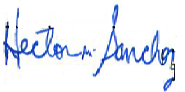 Hector M. Sanchez